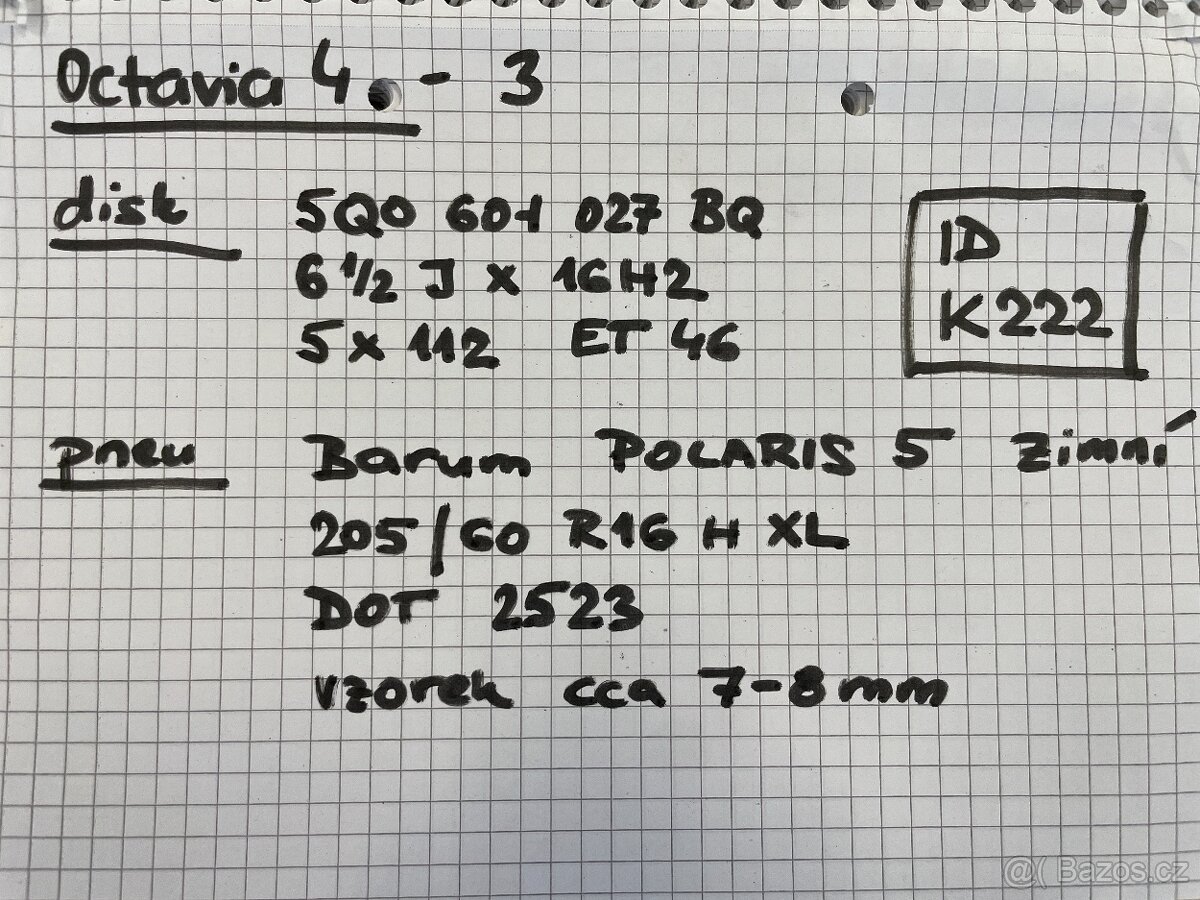 Octavia 4. - 3
disk 5Q0 601 027 BQ
6 1/2 J x 16H2
5 x 112 ET 46
ID
K222
pneu Barum POLARIS 5 zimní
205/60 R16 H XL
DOT 2523
vzorek cca 7-8 mm
@( Bazos.cz